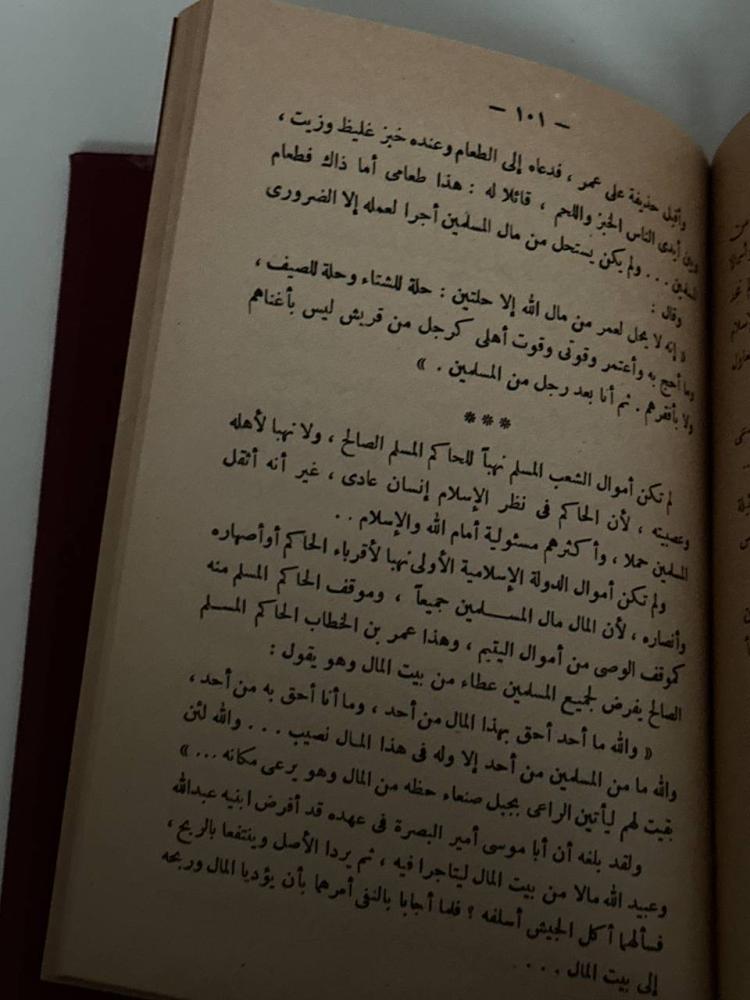 — ١٠١ —
وأقبل حذيفة على عمر ، فدعاه إلى الطعام وعنده خبز غليظ وزيت ،
وبين أيدى الناس الخبز واللحم ، قائلا له : هذا طعامى أما ذاك فطعام
المسلمين . . . ولم يكن يستحل من مال المسلمين أجرا لعمله إلا الضرورى
وقال :
« إنه لا يحل لعمر من مال الله إلا حلتين : حلة للشتاء وحلة للصيف ،
وما أحج به وأعتمر وقوتى وقوت أهلى كرجل من قريش ليس بأغناهم
ولا بأفقرهم . ثم أنا بعد رجل من المسلمين . »
***
لم تكن أموال الشعب المسلم نهباً للحاكم المسلم الصالح ، ولا نهبا لأهله
وعصبته ، لأن الحاكم فى نظر الإسلام إنسان عادى ، غير أنه أثقل
المسلمين حملا ، وأكثرهم مسئولية أمام الله والإسلام . .
ولم تكن أموال الدولة الإسلامية الأولى نهبا لأقرباء الحاكم أو أصهاره
وأنصاره ، لأن المال مال المسلمين جميعاً ، وموقف الحاكم المسلم منه
كموقف الوصى من أموال اليتيم ، وهذا عمر بن الخطاب الحاكم المسلم
الصالح يفرض لجميع المسلمين عطاء من بيت المال وهو يقول :
« والله ما أحد أحق بهذا المال من أحد ، وما أنا أحق به من أحد ،
والله ما من المسلمين من أحد إلا وله فى هذا المال نصيب . . . والله لئن
بقيت لهم ليأتين الراعى بجبل صنعاء حظه من المال وهو يرعى مكانه ... »
ولقد بلغه أن أبا موسى أمير البصرة فى عهده قد أقرض ابنيه عبدالله
وعبيد الله مالا من بيت المال ليتاجرا فيه ، ثم يردا الأصل وينتفعا بالربح ،
فسألهما أكل الجيش أسلفه ؟ فلما أجابا بالنفى أمرهما بأن يؤديا المال وربحه
إلى بيت المال . . . .